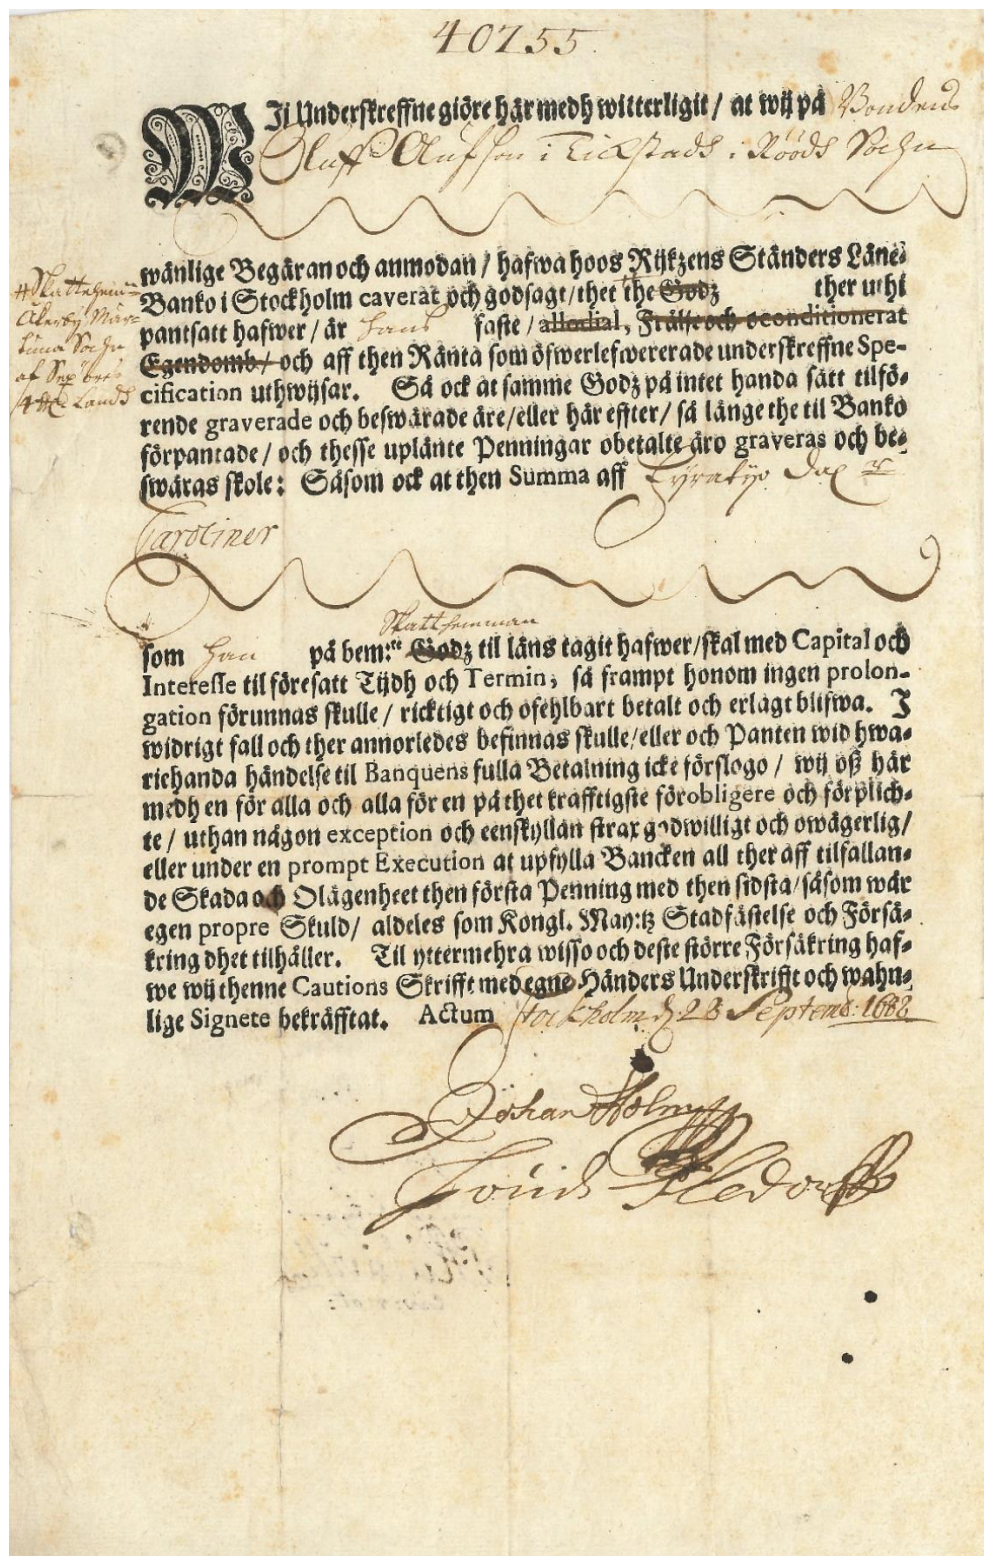 40755.
WIj Underskreffne giöre här medh witterligit / at wij på Bondens
Oluff Olufson i Tickstadh i Röödh Sochn
wänlige Begäran och anmodan / hafwa hoos Rijkzens Ständers Läne-
Banko i Stockholm caverat och godsagt / thet the Godz ther uthi
pantsatt hafwer / är hans faste / allodial, Frälse och oconditionerat
Egendomb / och aff then Ränta som öfwerlefwererade underskreffne Spe-
cification uthwijsar. Så ock at samme Godz på intet handa sätt tilfö-
rende graverade och beswärade äre / eller här effter / så länge the til Banko
förpantade / och thesse uplänte Penningar obetalte äro graveras och be-
swäras skole: Såsom ock at then Summa aff Fyratijo Dal r
Caroliner
# Skattehem-
Åkerby
Sochn
af
Landh
Skatthemman
som han på bem:te Godz til läns tagit hafwer / skal med Capital och
Interesse til föresatt Tijdh och Termin, så frampt honom ingen prolon-
gation förunnas skulle / ricktigt och ofehlbart betalt och erlagt blifwa. I
widrigt fall och ther annorledes befinnas skulle / eller och Panten wid hwa-
riehanda händelse til Banquens fulla Betalning icke förslogo / wij oß här
medh en för alla och alla för en på thet krafftigste förobligere och förplich-
te / uthan någon exception och eenskyllan strax godwilligt och owägerlig /
eller under en prompt Execution at upfylla Bancken all ther aff tilfallan-
de Skada och Olägenheet then första Penning med then sidsta / såsom wår
egen propre Skuld / aldeles som Kongl. May:tz Stadfästelse och Försä-
kring dhet tilhåller. Til yttermehra wisso och deste större Försäkring haf-
we wij thenne Cautions Skrifft med egne Händers Underskrifft och wahn-
lige Signete bekräfftat. Actum Stockholm d: 28 Septemb: 1688
Johan Holm